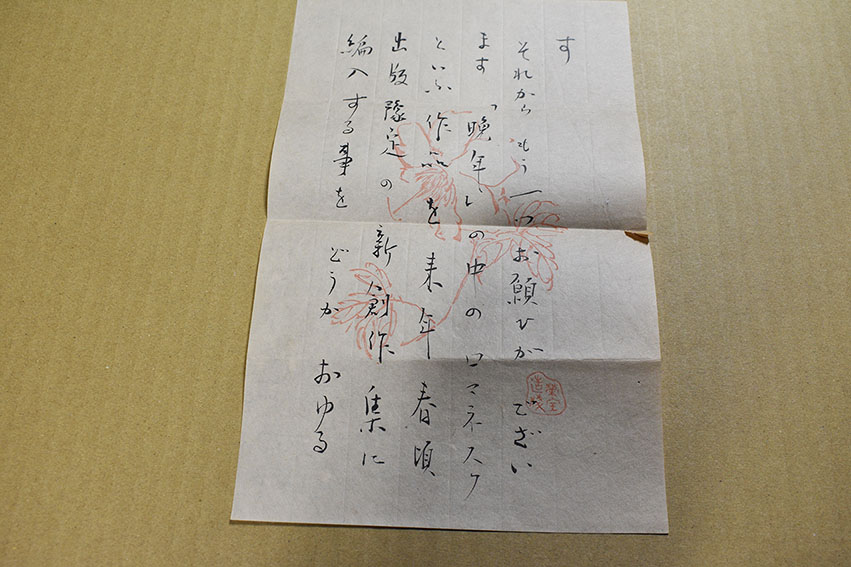 す
それからもう一つお願ひがござい
ます「晩年」の中のロマネスク
といふ作品を来年春頃
出版豫定の新人創作集に
編入する事をどうかおゆる